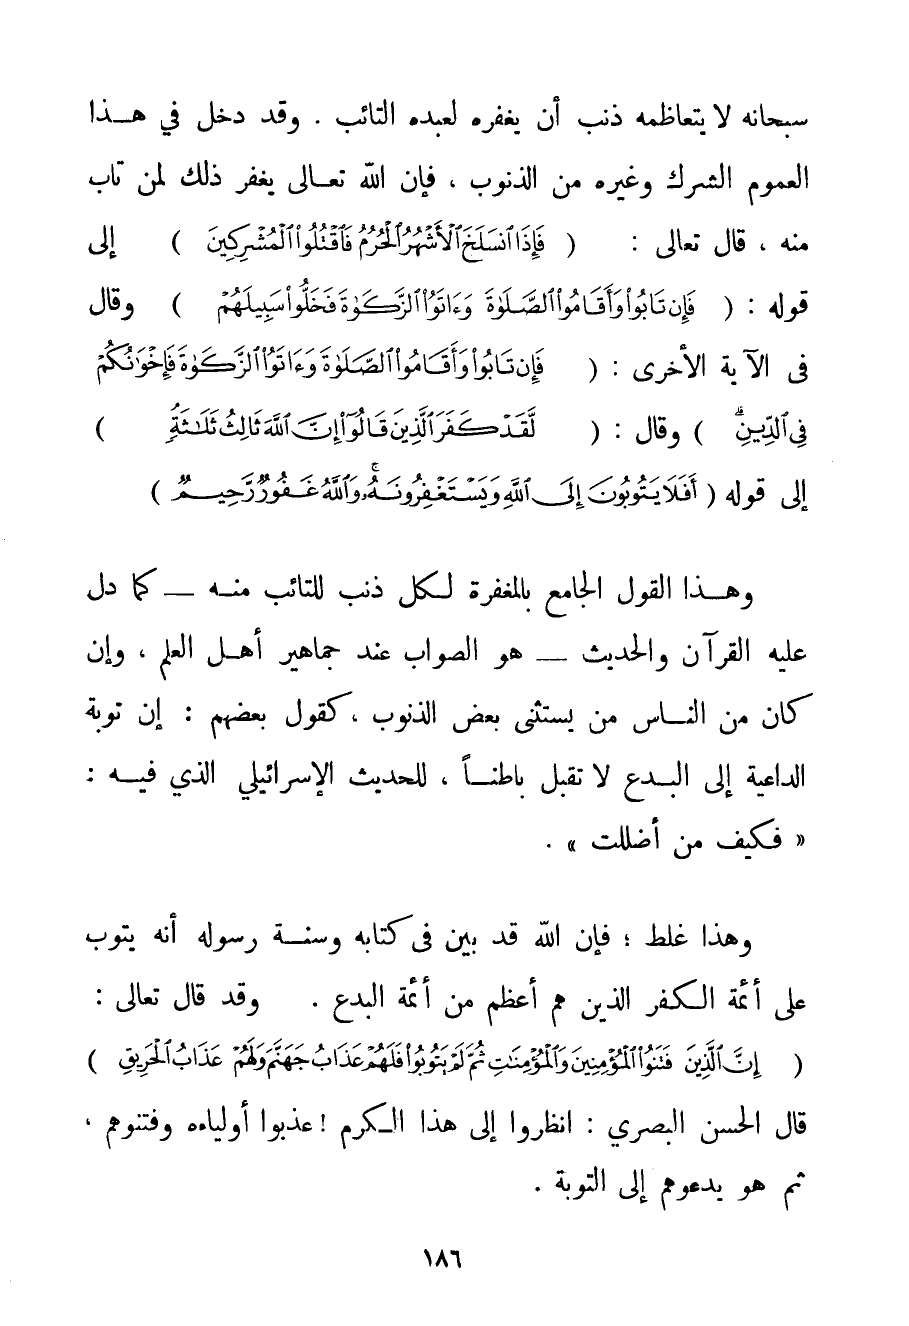 سبحانه لا يتعاظمه ذنب أن يغفره لعبده التائب . وقد دخل في هذا
العموم الشرك وغيره من الذنوب ، فإن الله تعالى يغفر ذلك لمن تاب
منه ، قال تعالى : ( فَإِذَا ٱنسَلَخَ ٱلْأَشْهُرُ ٱلْحُرُمُ فَٱقْتُلُوا۟ ٱلْمُشْرِكِينَ ) إلى
قوله : ( فَإِن تَابُوا۟ وَأَقَامُوا۟ ٱلصَّلَوٰةَ وَءَاتَوُا۟ ٱلزَّكَوٰةَ فَخَلُّوا۟ سَبِيلَهُمْ ) وقال
فى الآية الأخرى : ( فَإِن تَابُوا۟ وَأَقَامُوا۟ ٱلصَّلَوٰةَ وَءَاتَوُا۟ ٱلزَّكَوٰةَ فَإِخْوَٰنُكُمْ
فِى ٱلدِّينِ ۗ ) وقال : ( لَّقَدْ كَفَرَ ٱلَّذِينَ قَالُوٓا۟ إِنَّ ٱللَّهَ ثَالِثُ ثَلَٰثَةٍ )
إلى قوله ( أَفَلَا يَتُوبُونَ إِلَى ٱللَّهِ وَيَسْتَغْفِرُونَهُۥ ۚ وَٱللَّهُ غَفُورٌ رَّحِيمٌ )
وهذا القول الجامع بالمغفرة لكل ذنب للتائب منه — كما دل
عليه القرآن والحديث — هو الصواب عند جماهير أهل العلم ، وإن
كان من الناس من يستثنى بعض الذنوب ، كقول بعضهم : إن توبة
الداعية إلى البدع لا تقبل باطناً ، للحديث الإسرائيلي الذي فيه :
« فكيف من أضللت » .
وهذا غلط ؛ فإن الله قد بين فى كتابه وسنة رسوله أنه يتوب
على أئمة الكفر الذين هم أعظم من أئمة البدع . وقد قال تعالى :
( إِنَّ ٱلَّذِينَ فَتَنُوا۟ ٱلْمُؤْمِنِينَ وَٱلْمُؤْمِنَٰتِ ثُمَّ لَمْ يَتُوبُوا۟ فَلَهُمْ عَذَابُ جَهَنَّمَ وَلَهُمْ عَذَابُ ٱلْحَرِيقِ )
قال الحسن البصري : انظروا إلى هذا الكرم ! عذبوا أولياءه وفتنوهم ،
ثم هو يدعوهم إلى التوبة .
١٨٦